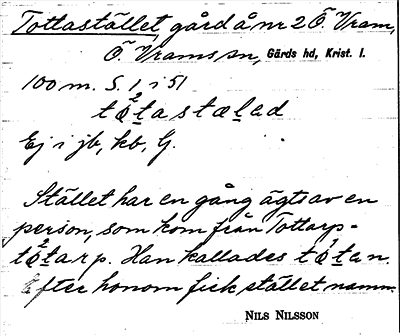 Tottastället, gård å nr 2 Ö Vram,
Ö. Vrams sn, Gärds hd, Krist. l.
100 m. S. 1 i 51
tò²ṯastæḻad
Ej i jb, kb, G.
Stället har en gång ägts av en
person, som kom från Tottarp-
tò²ṯarp. Han kallades tò¹ṯan.
Efter honom fick stället namn.
NILS NILSSON